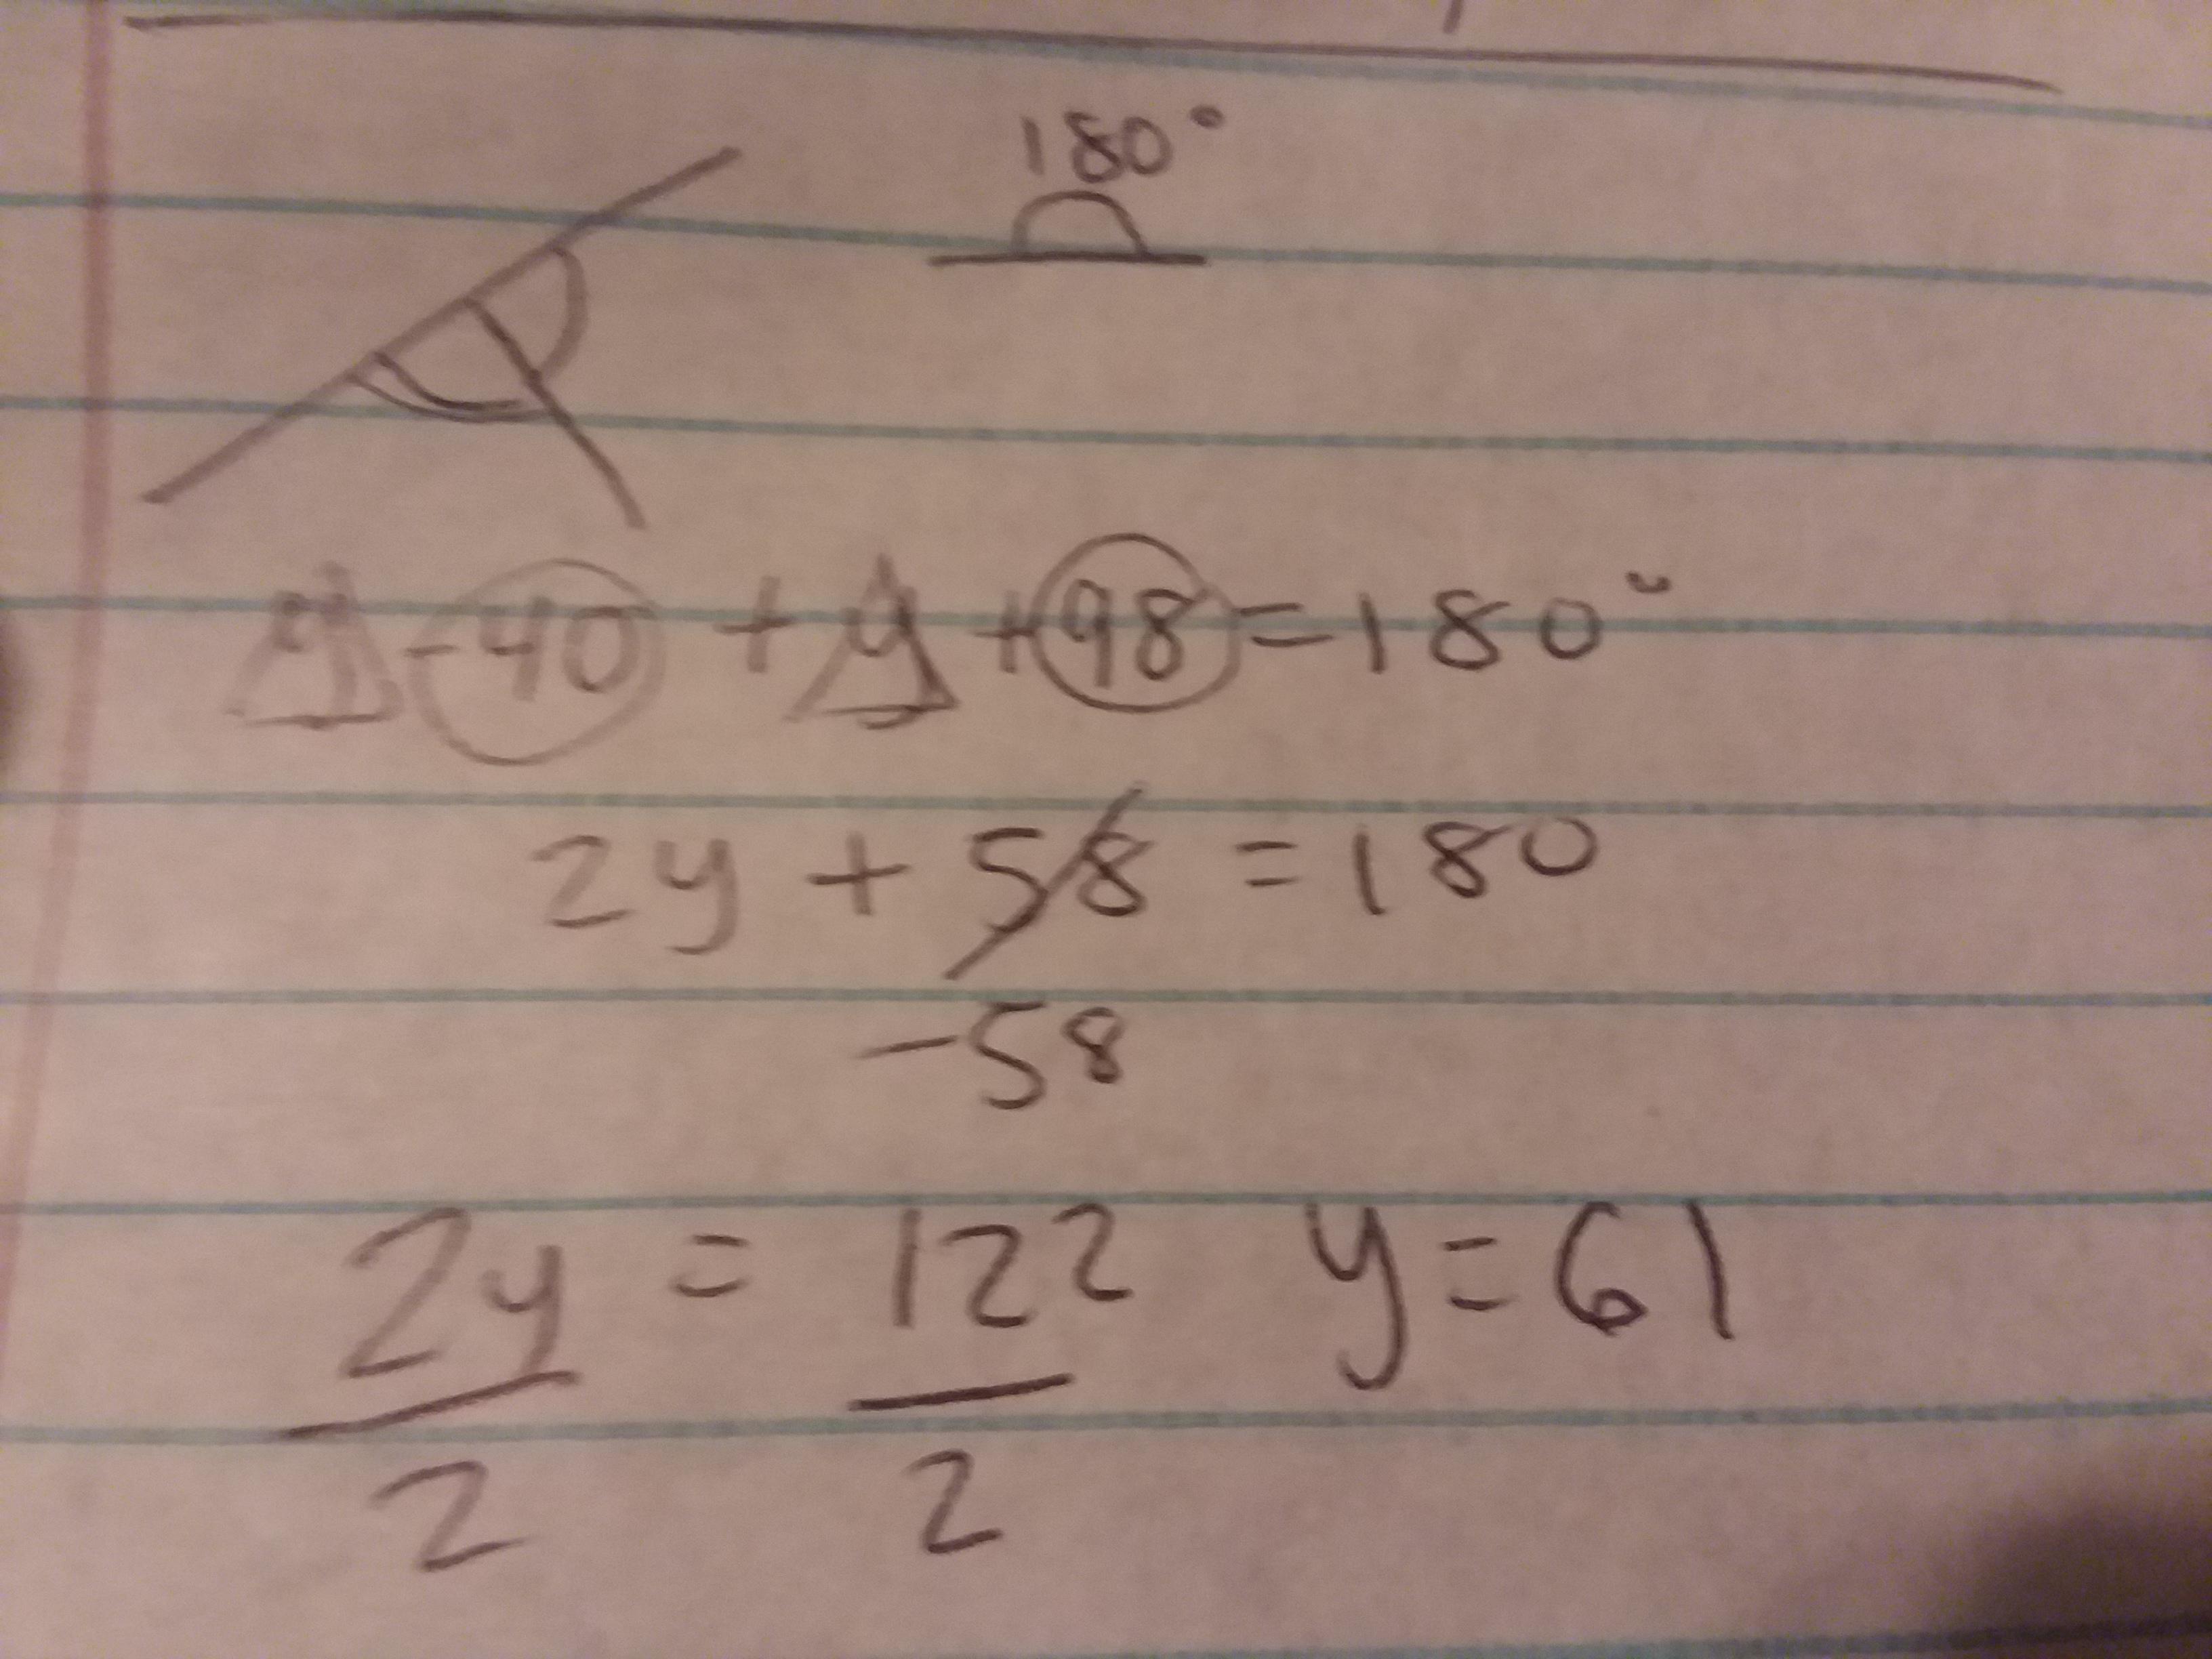 180°
y - 40 + y + 98 = 180°
2y + 58 = 180
-58
2y = 122 y = 61
2 2